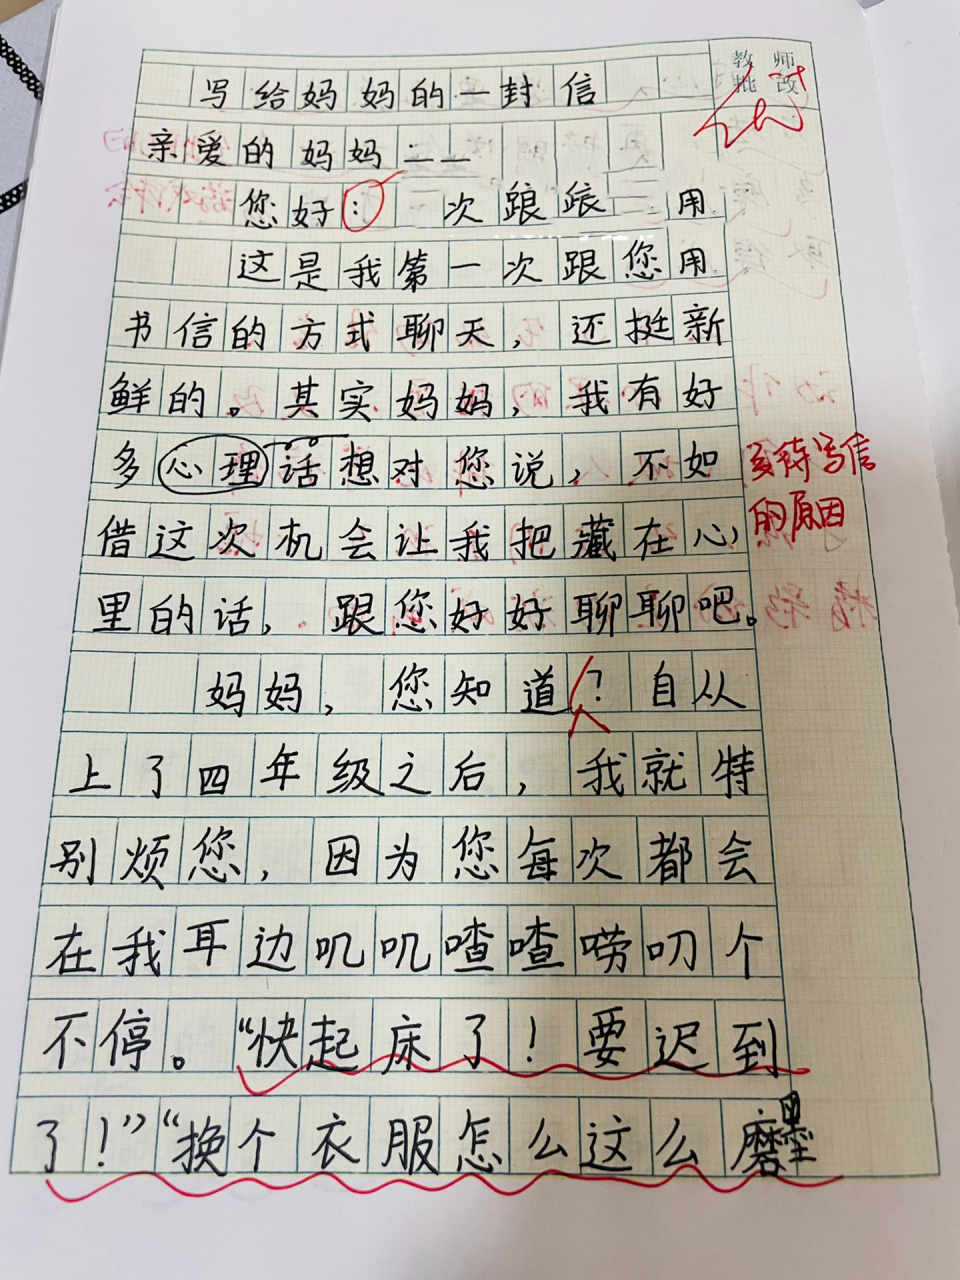 教师
批改
写给妈妈的一封信
亲爱的妈妈：
您好： 次踉用
这是我第一次跟您用
书信的方式聊天，还挺新
鲜的。其实妈妈，我有好
多心理话想对您说，不如
借这次机会让我把藏在心
里的话，跟您好好聊聊吧。
交待写信
的原因
妈妈，您知道？自从
上了四年级之后，我就特
别烦您，因为您每次都会
在我耳边叽叽喳喳唠叨个
不停。“快起床了！要迟到
了！”“换个衣服怎么这么磨